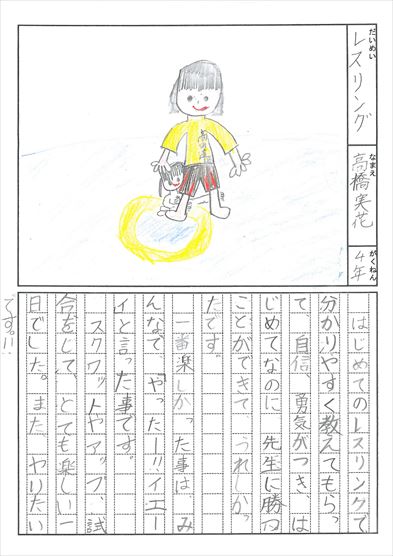 だいめい
レスリング
なまえ
高橋実花
がくねん
4年
はじめてのレスリングで
分かりやすく教えてもらっ
て、自信、勇気がつき、は
じめてなのに先生に勝つ
ことができて、うれしかっ
たです。
一番楽しかった事は、み
んなで、「やったー!!イエー
イと言った事です。
スクワットやアップ、試
合をして、とても楽しい一
日でした。また、やりたい
です。!!